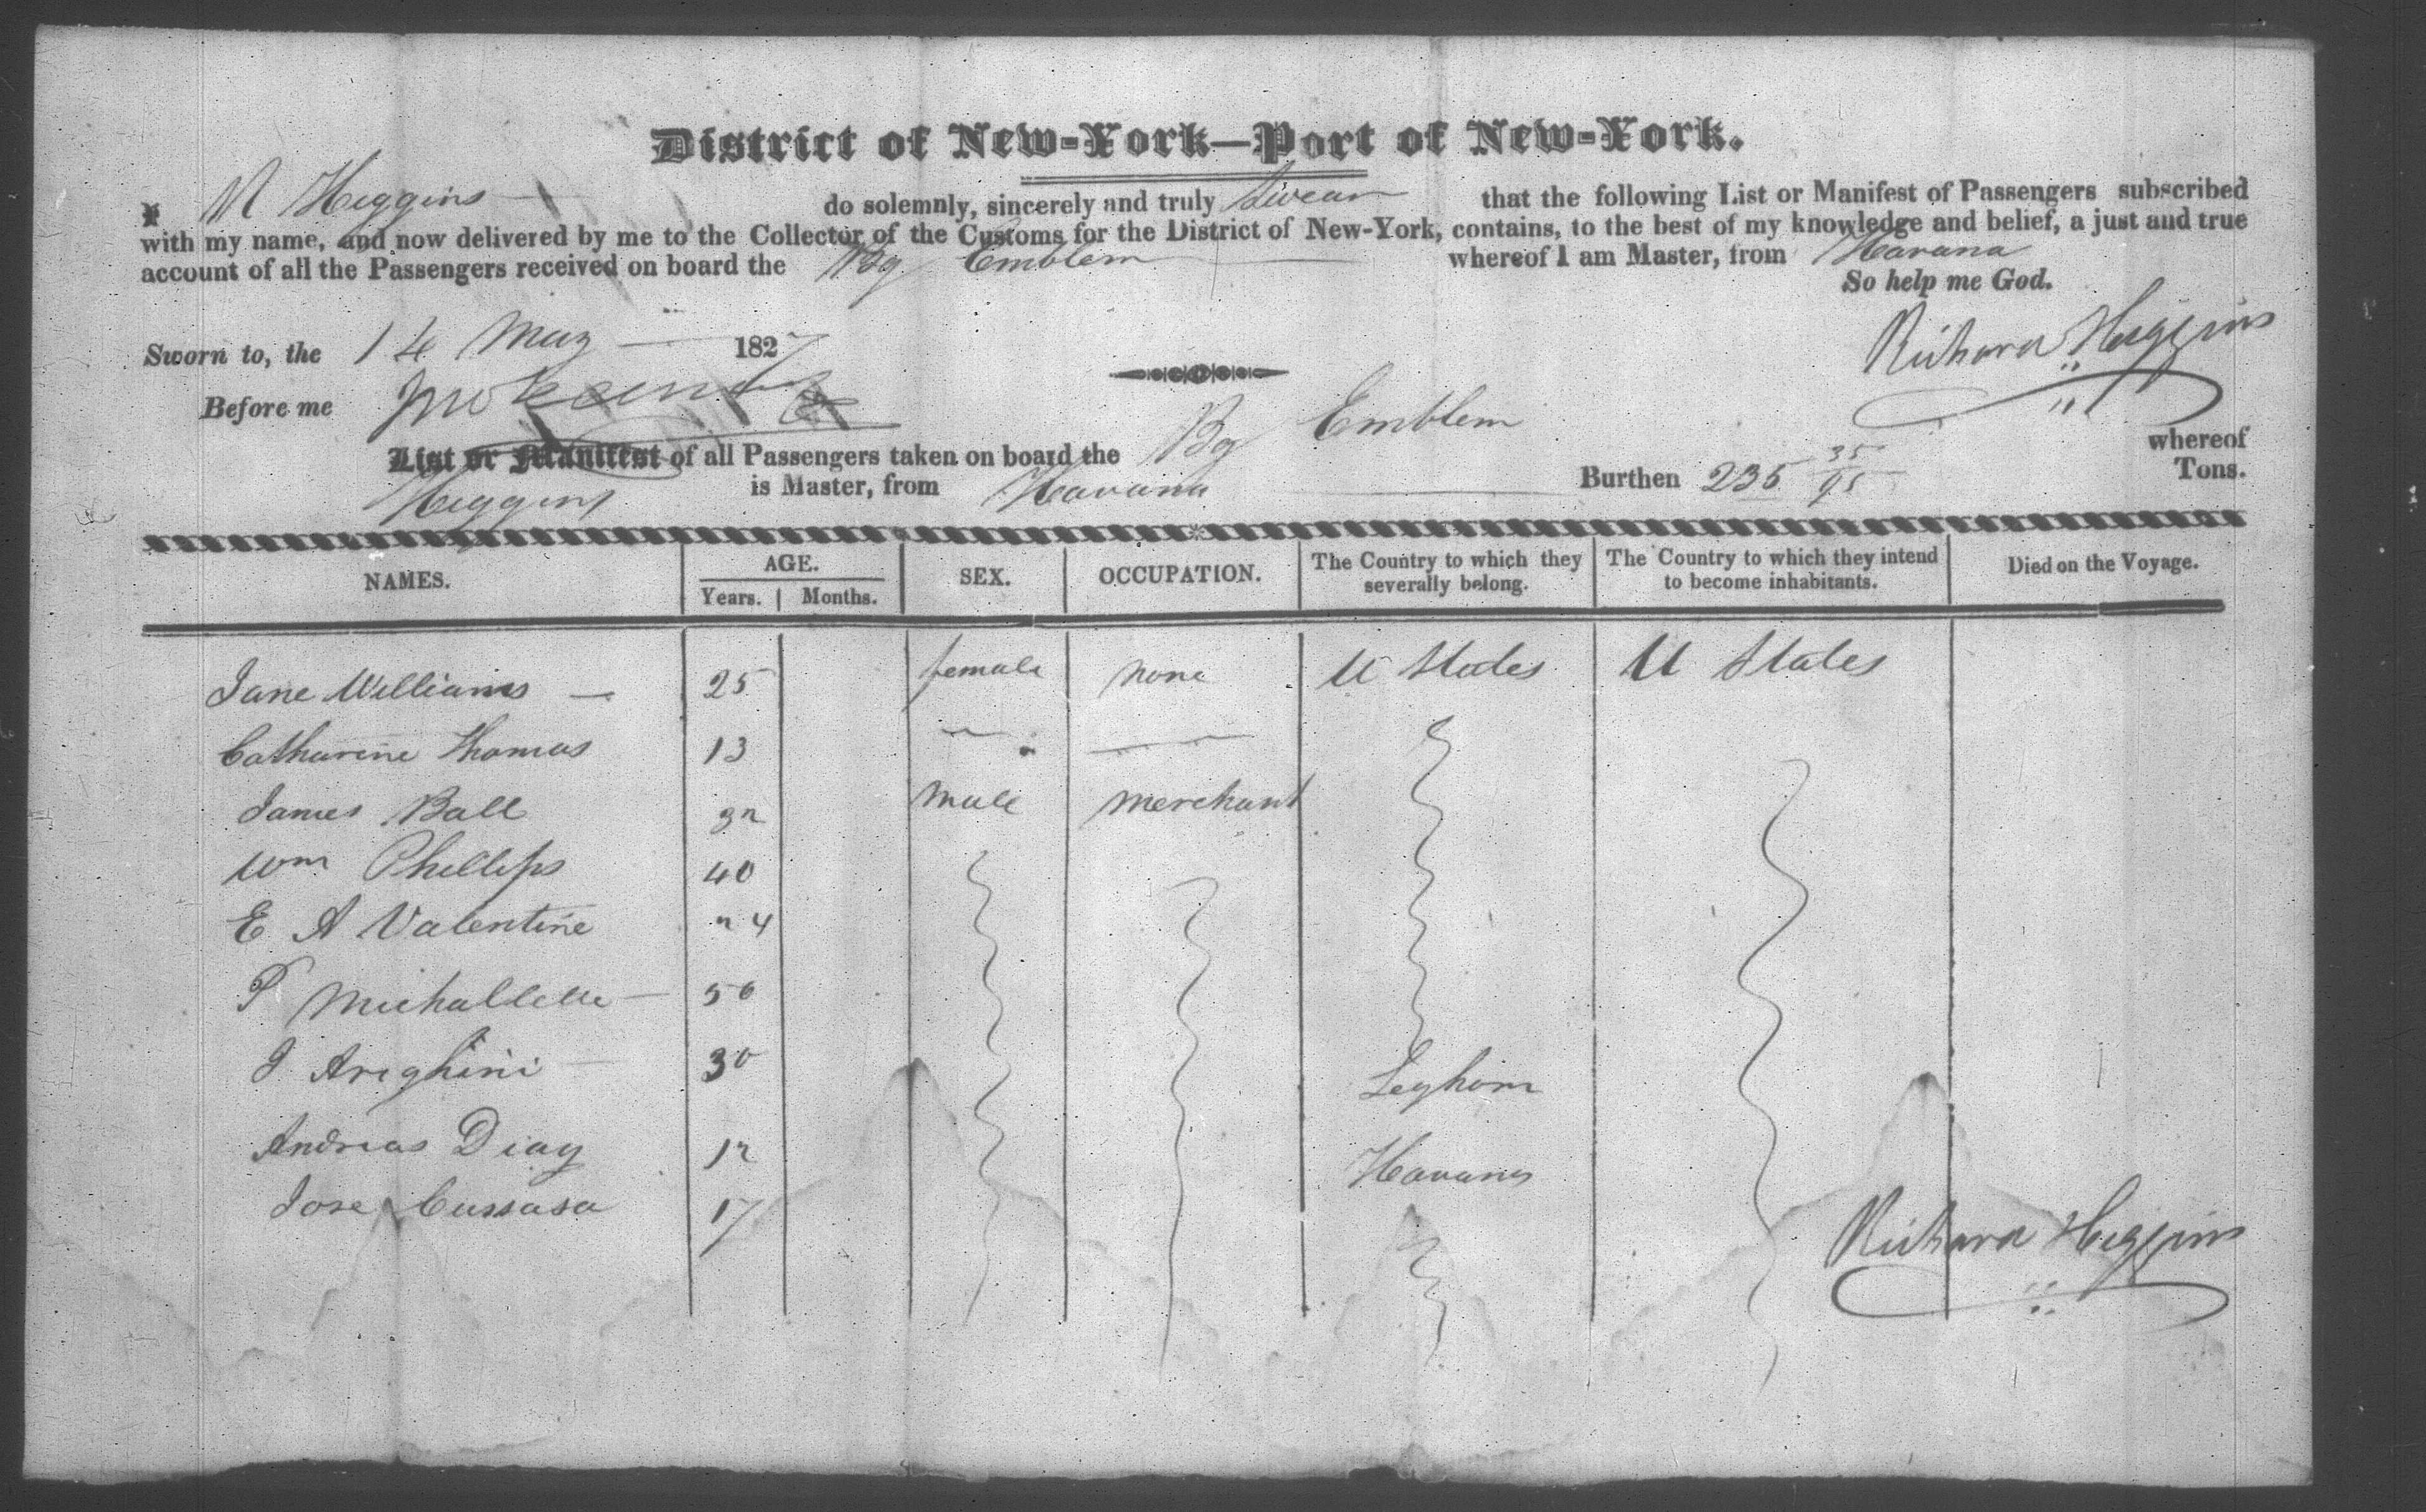 District of New-York—Port of New-York.
I R Higgins do solemnly, sincerely and truly Swear that the following List or Manifest of Passengers subscribed
with my name, and now delivered by me to the Collector of the Customs for the District of New-York, contains, to the best of my knowledge and belief, a just and true
account of all the Passengers received on board the Bg Emblem whereof I am Master, from Havana
So help me God.
Sworn to, the 14 May 1827 Richard Higgins
Before me
List or Manifest of all Passengers taken on board the Bg Emblem whereof
Higgins is Master, from Havana Burthen 235 35/95 Tons.
NAMES. AGE. SEX. OCCUPATION. The Country to which they severally belong. The Country to which they intend to become inhabitants. Died on the Voyage.
Years. Months.
Jane Williams — 25 female none U States U States
Catharine Thomas 13
James Ball 32 male merchant
Wm Phillips 40
E A Valentine 24
P 50
J Arighini 30 Leghorn
Andreas Diaz 12 Havana
Jose Cussasa 17
Richard Higgins